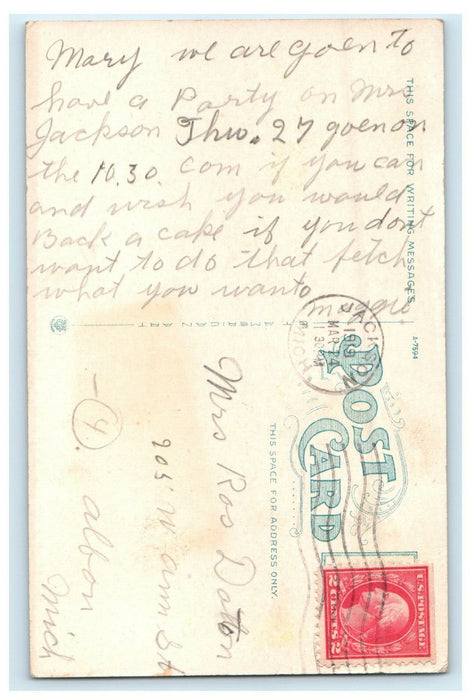 Mary we are goen to
have a Party on Mrs
Jackson Thur. 27 goen on
the 10.30. com if you can
and wish you would
Back a cake if you dont
want to do that fetch
what you wanto
Maggie
THIS SPACE FOR WRITING MESSAGES
AMERICAN ART
A-7594
JACKSON,
MAR 24
1919
MICH.
POST
CARD
THIS SPACE FOR ADDRESS ONLY.
Mrs Ros Dalton
905 W ann St
4. albon
Mich
U.S. POSTAGE
2 CENTS 2